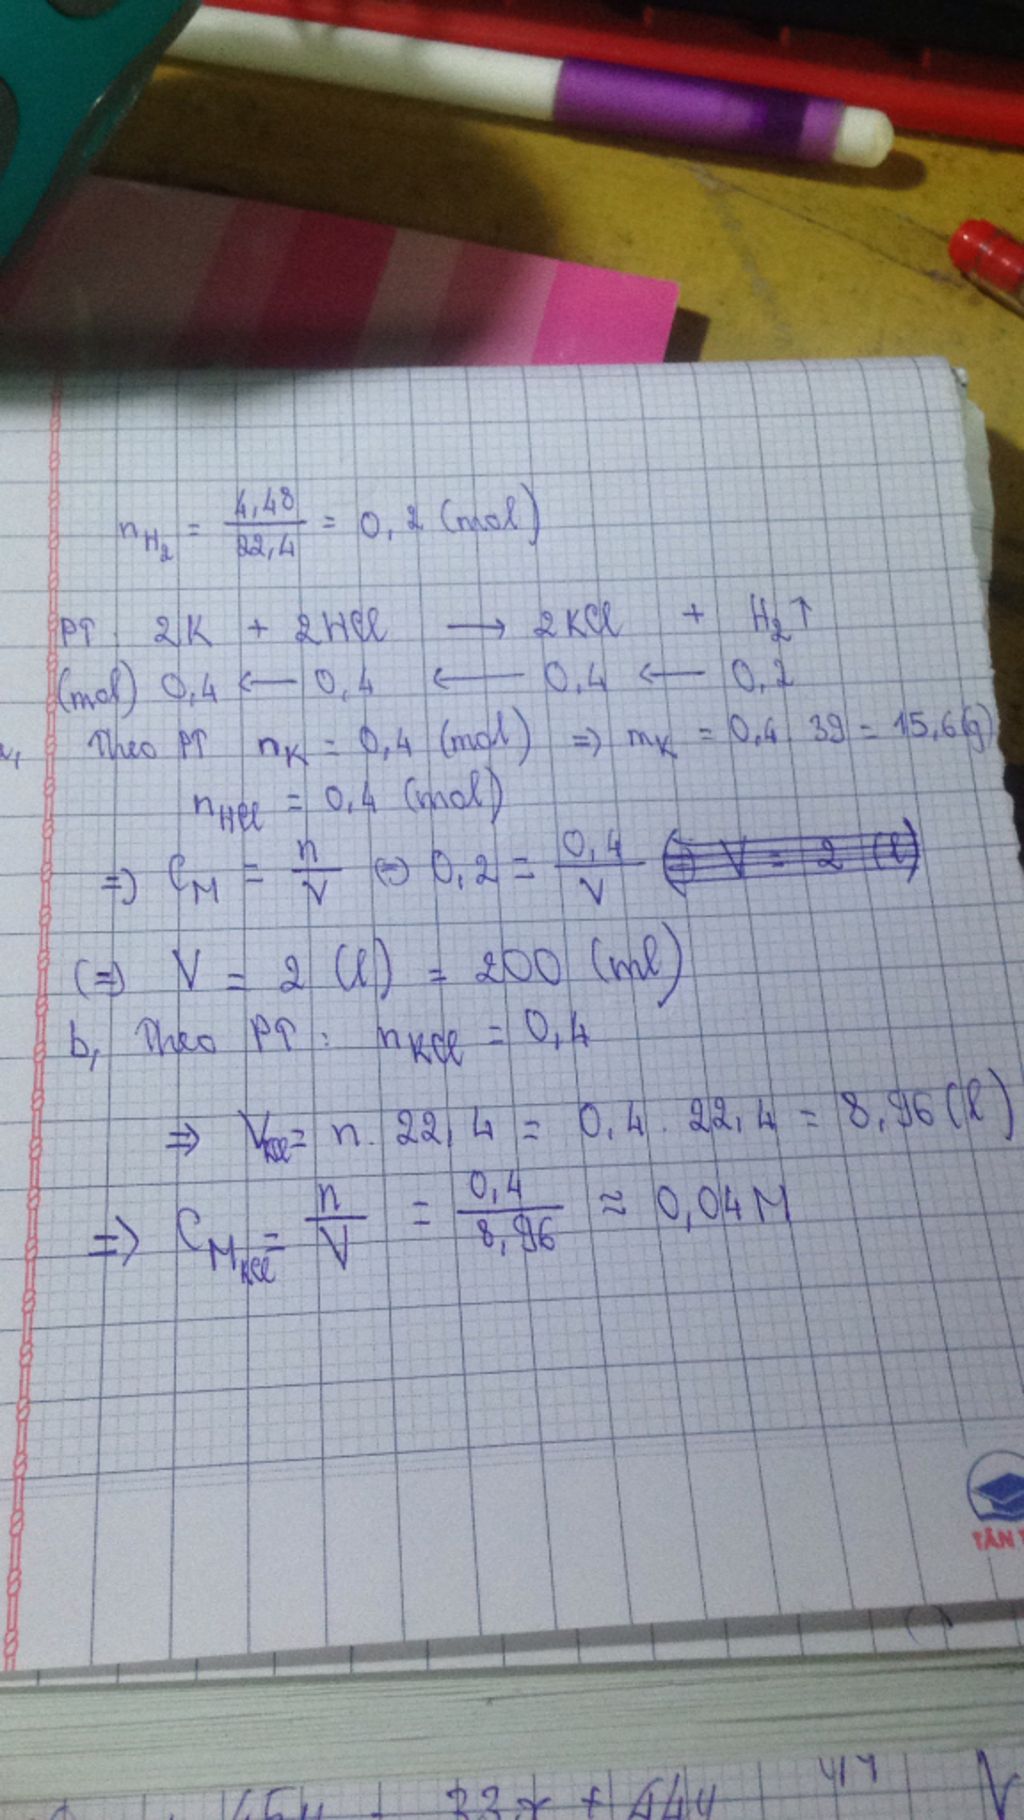 nH₂ = 4,48/22,4 = 0,2 (mol)
PT: 2K + 2HCl → 2KCl + H₂↑
(mol) 0,4 ← 0,4 ← 0,4 ← 0,2
a, Theo PT nK = 0,4 (mol) => mK = 0,4 . 39 = 15,6(g)
nHCl = 0,4 (mol)
=> CM = n/V <=> 0,2 = 0,4/V <=> V = 2 (l)
<=> V = 2 (l) = 200 (ml)
b, Theo PT : nKCl = 0,4
=> VKCl = n. 22,4 = 0,4. 22,4 = 8,96 (l)
=> CMKCl = n/V = 0,4/8,96 ≈ 0,04M
TÂN